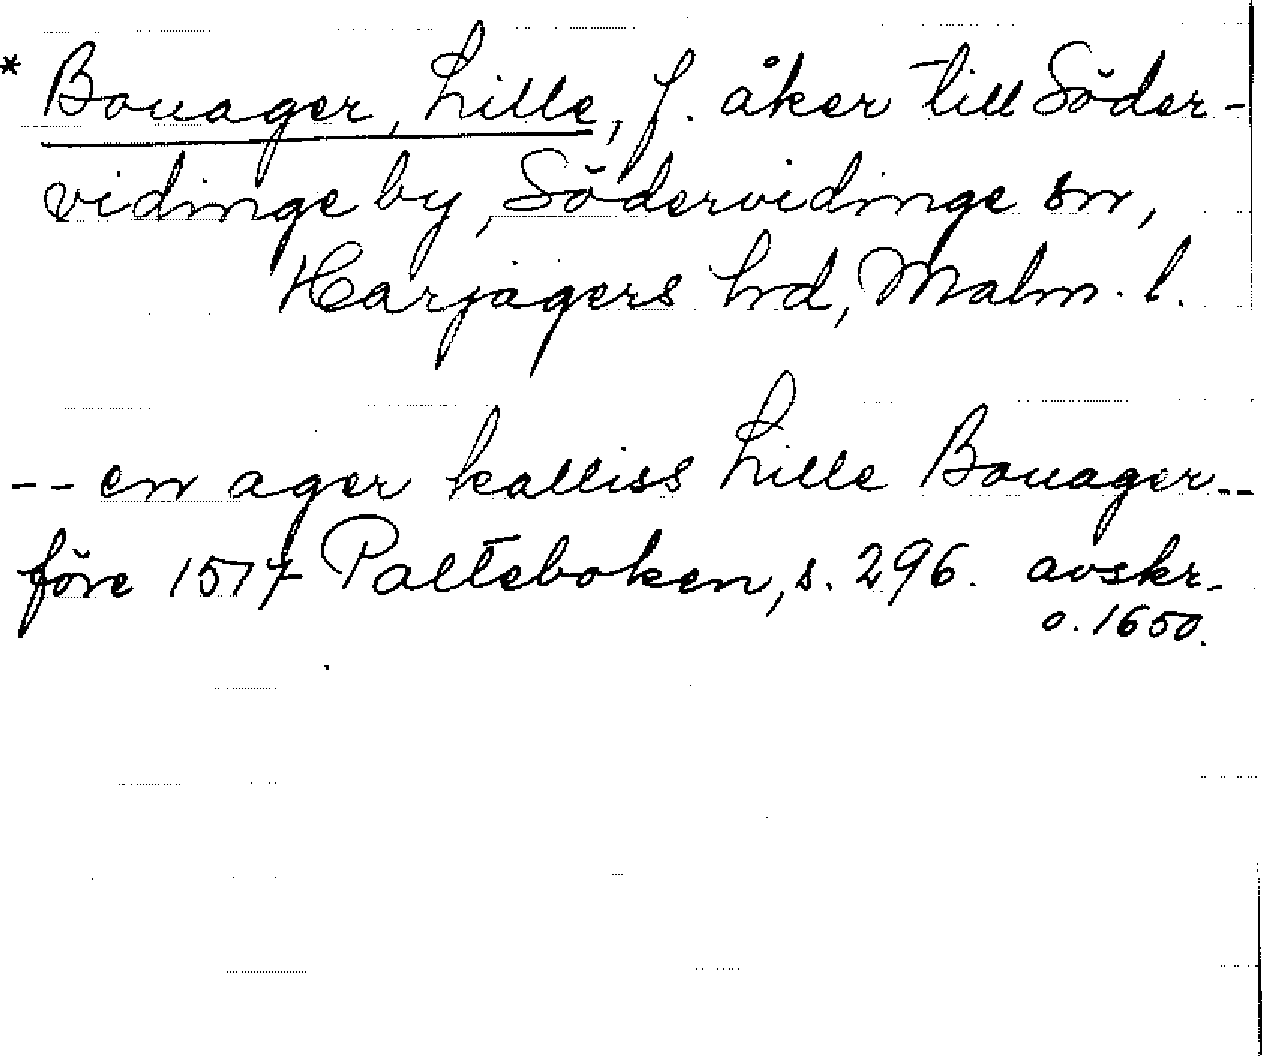 * Bouager, Lille, f. åker till Söder-
vidinge by, Södervidinge sn,
Harjagers hd, Malm. l.
-- en ager kalliss Lille Bouager --
före 1517 Palteboken, s. 296. avskr.
o. 1650.